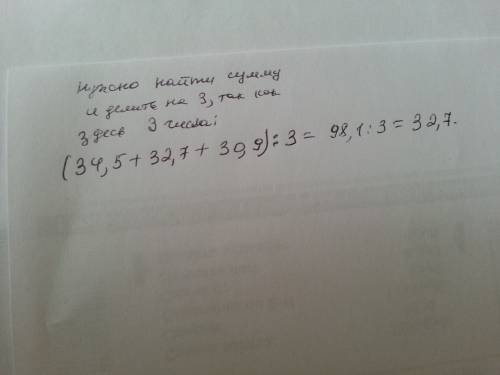 нужно найти сумму
и делить на 3, так как
здесь 3 числа;
(34,5 + 32,7 + 30,9) : 3 = 98,1 : 3 = 32,7.